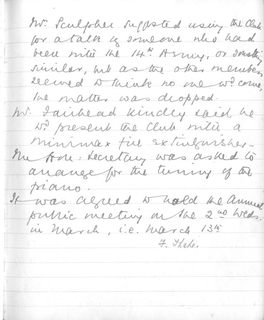 Mr. Sculpher suggested using the Club
for a talk by someone who had
been with the 14th Army, or something
similar, but as the other members
seemed to think no one wd come,
the matter was dropped.
Mr. Fairhead kindly said he
wd present the Club with a
minimax fire extinguisher.
The Hon: Secretary was asked to
arrange for the tuning of the
piano.
It was agreed to hold the Annual
public meeting on the 2nd Weds.
in March, i.e. March 13th